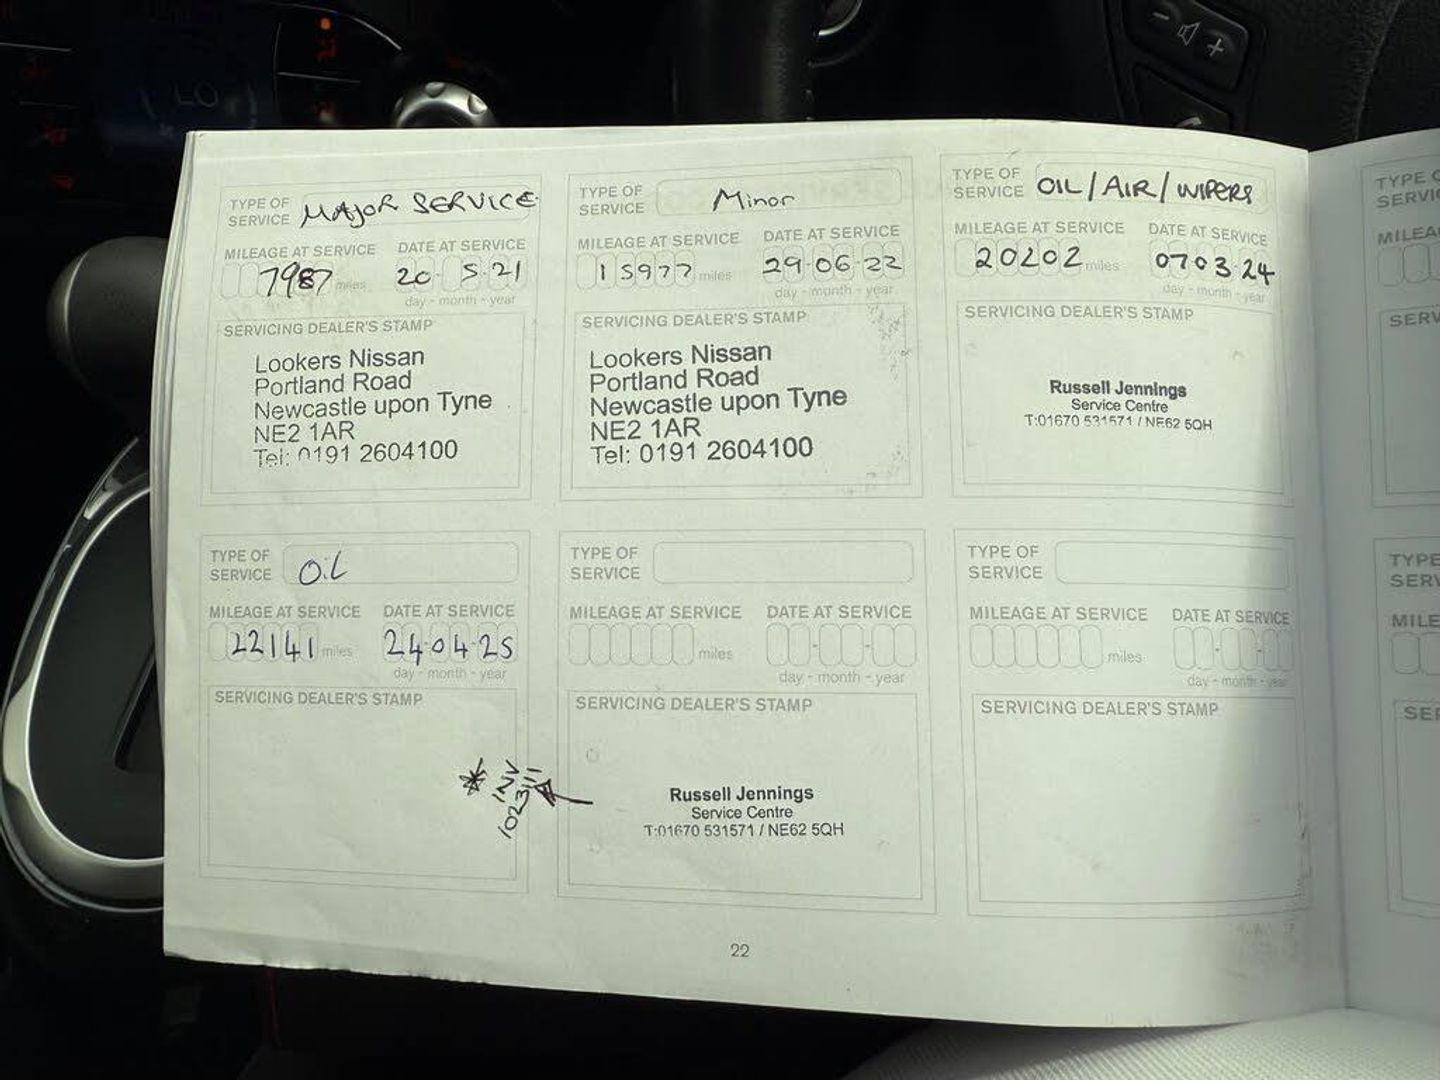 LO
- +
TYPE OF SERVICE MAJOR SERVICE
MILEAGE AT SERVICE DATE AT SERVICE
7987 miles 20 5.21
day - month - year
SERVICING DEALER'S STAMP
Lookers Nissan
Portland Road
Newcastle upon Tyne
NE2 1AR
Tel: 0191 2604100
TYPE OF SERVICE Minor
MILEAGE AT SERVICE DATE AT SERVICE
15977 miles 29-06-22
day - month - year
SERVICING DEALER'S STAMP
Lookers Nissan
Portland Road
Newcastle upon Tyne
NE2 1AR
Tel: 0191 2604100
TYPE OF SERVICE OIL/AIR/WIPERS
MILEAGE AT SERVICE DATE AT SERVICE
20202 miles 07 03-24
day - month - year
SERVICING DEALER'S STAMP
Russell Jennings
Service Centre
T:01670 531571 / NE62 5QH
TYPE OF SERVICE OiL
MILEAGE AT SERVICE DATE AT SERVICE
22141 miles 24-04-25
day - month - year
SERVICING DEALER'S STAMP
* INV
102311
TYPE OF SERVICE
MILEAGE AT SERVICE DATE AT SERVICE
miles
day - month - year
SERVICING DEALER'S STAMP
Russell Jennings
Service Centre
T:01670 531571 / NE62 5QH
TYPE OF SERVICE
MILEAGE AT SERVICE DATE AT SERVICE
miles
day - month - year
SERVICING DEALER'S STAMP
22